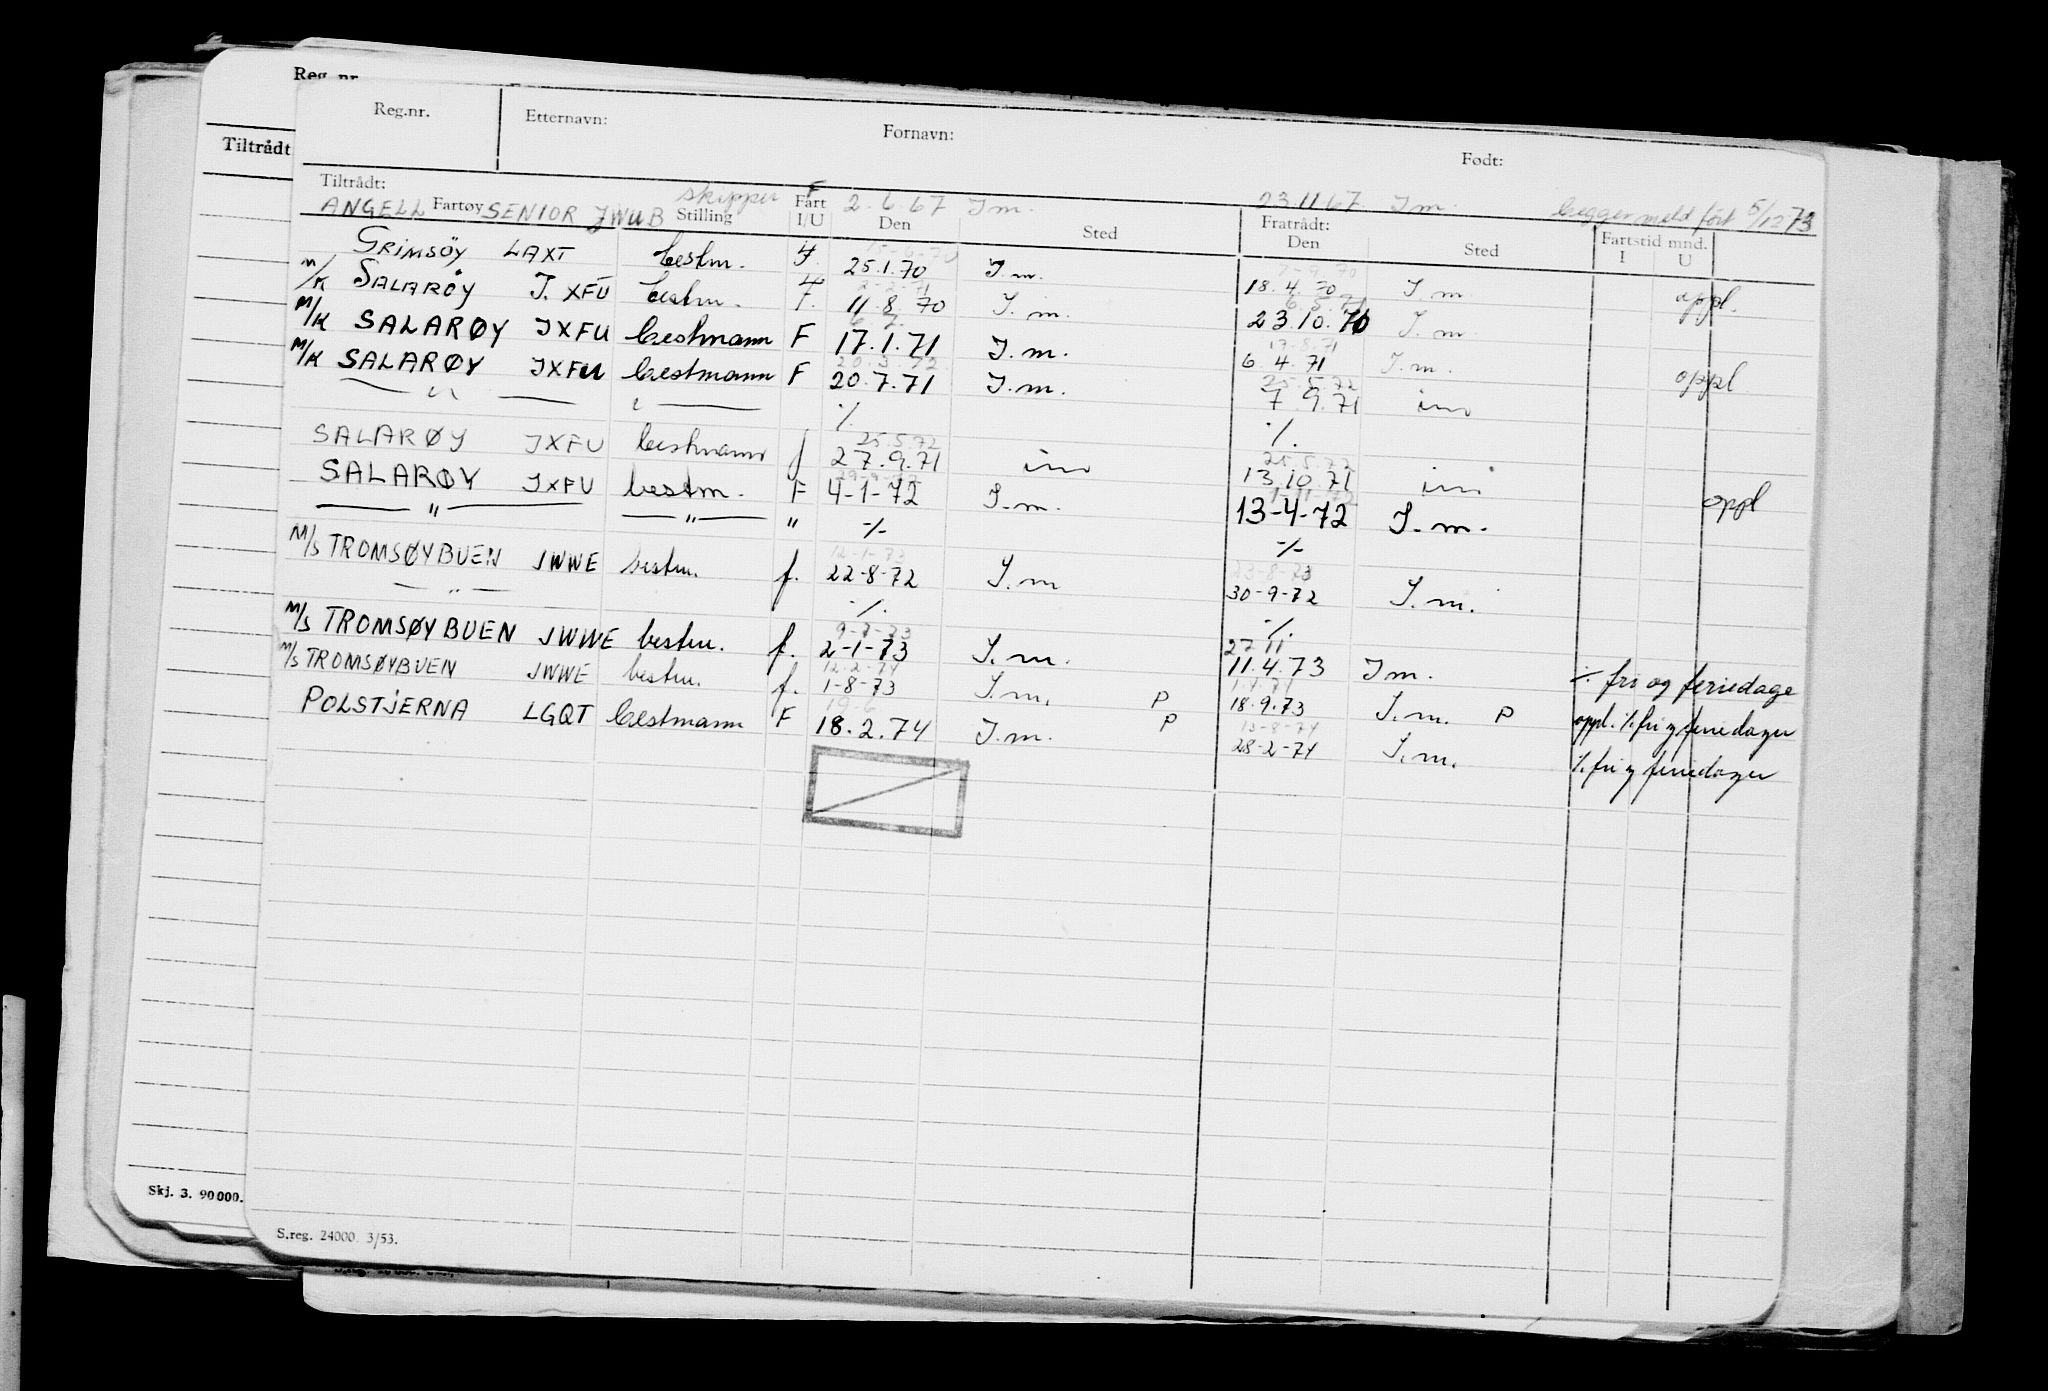 Reg. nr.
Tiltrådt
Reg.nr. Etternavn: Fornavn: Født:
Tiltrådt: skipper F 2.6.67 I m. 23.11.67. I m. begge meld ført 5/12 73
ANGELL SENIOR JWUB
Fartøy Stilling Fart I/U Den Sted Fratrådt: Den Sted Fartstid mnd. I U
GRIMSÖY LAXT bestm. F. 25.1.70 I.m. 18.4.70 I.m. oppl.
M/K SALARØY J.XFU bestm. F. 11.8.70 I.m. 23.10.70 I.m
M/K SALARØY JXFU bestmann F 17.1.71 I.m. 6.4.71 I.m. oppl
M/K SALARØY JXFU bestmann F 20.7.71 I.m. 7.9.71 im
— " — — " — 2-2-71 ·/. 6.5.71 ·/.
SALARØY JXFU bestmann f 27.9.71 im 13.10.71 im oppl
25.5.72 25.5.72
SALARØY JXFU bestm. F 4-1-72 I.m. 13-4-72 I.m.
— " — — " — " -/- -/-
M/S TROMSØYBUEN JWWE bestm. f. 22-8-72 I.m 30-9-72 I.m.
— " — ·/. ·/.
12-1-73 23-8-73
M/S TROMSØYBUEN JWWE bestm. f. 2-1-73 I.m. 11.4.73 I m. ·/. fri og feriedage
M/S TROMSØYBUEN JWWE bestm. f. 1-8-73 I.m. P 18.9.73 I.m. P oppl. ·/. fri og feriedager
12.2-74
POLSTJERNA LGQT bestmann F 18.2.74 I.m. P 28-2-74 I.m. ·/. fri og feriedager
13-8-74
Skj. 3. 90000.
S.reg. 24000 3/53.